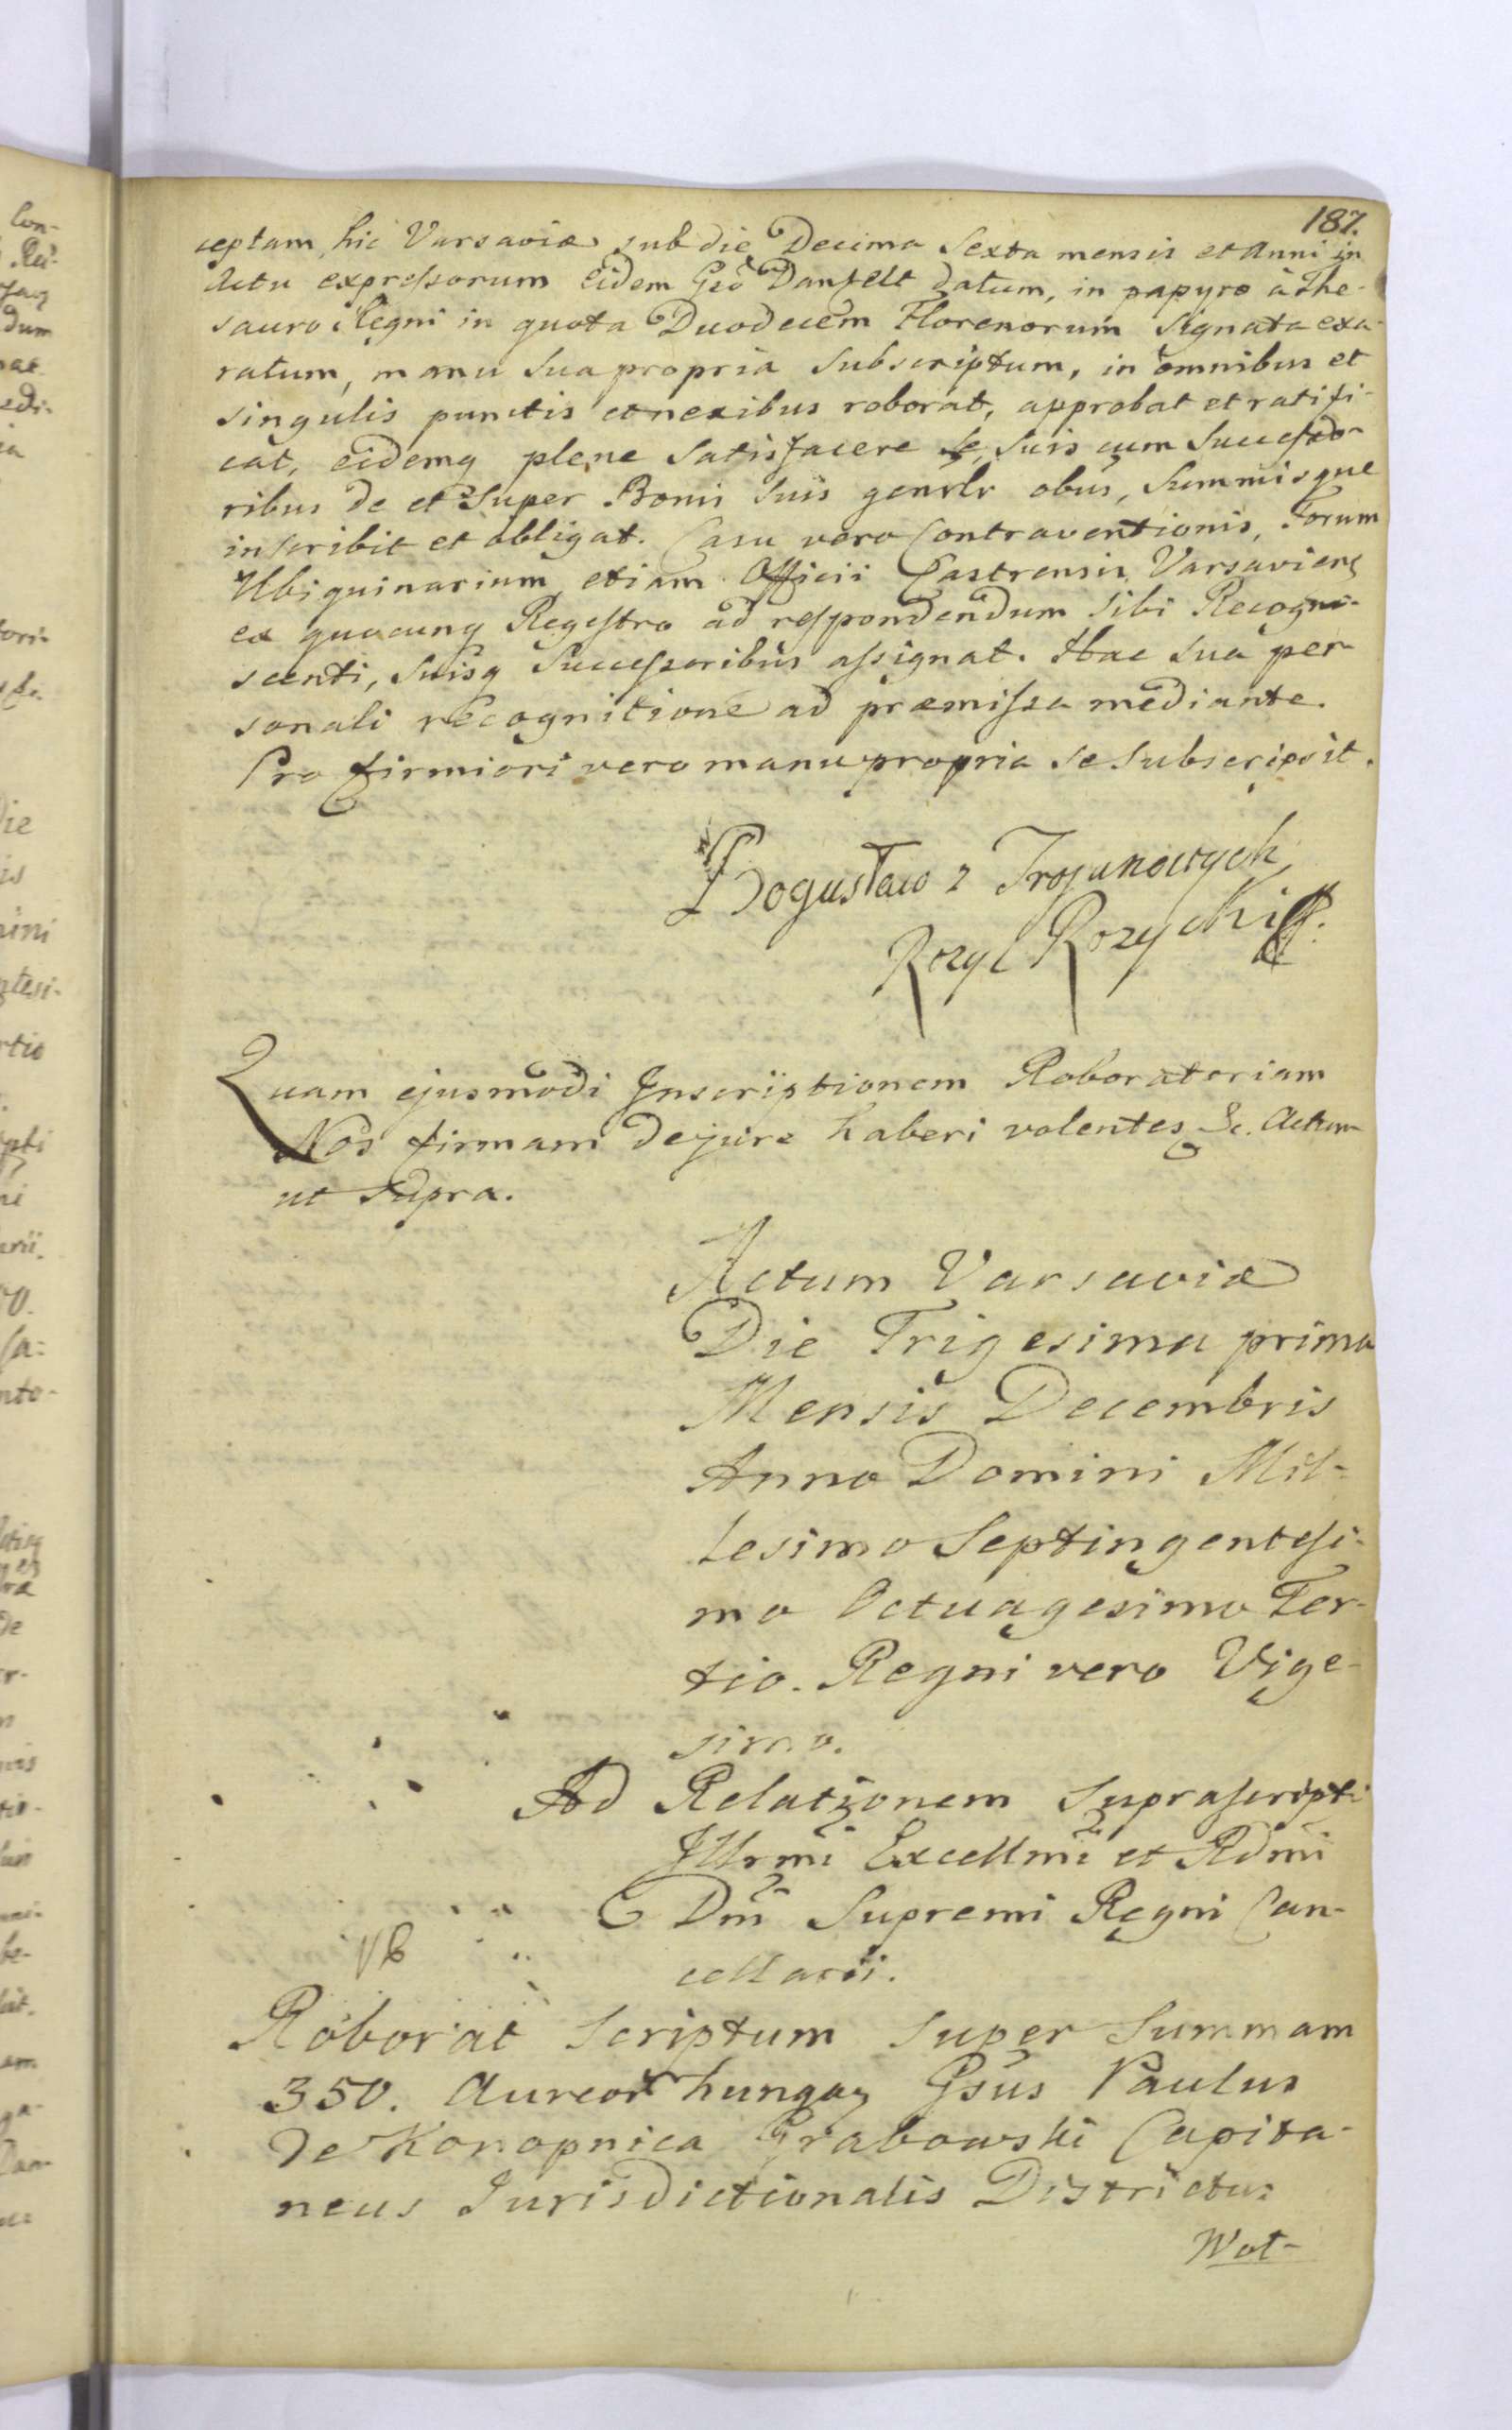 187.
ceptam, hic Varsaviæ sub die Decima Sexta mensis et Anni in
Actu expressorum Eidem Gsō Danfelt datum, in papyro à The-
sauro Regni in quota Duodecem Florenorum Signata exa-
ratum, manu Sua propria Subscriptum, in omnibus et
singulis punctis et nexibus roborat, approbat et ratifi-
cat, eidemq plene Satisfacere se, Suis cum Successo-
ribus de et Super Bonis Suis genrlr obus, Summisque
inscribit et obligat. Casu vero Contraventionis, Forum
Ubiquinarium etiam Officii Castrensis Varsaviens
ex quocunq Regestro ad respondendum Sibi Recogno-
scenti, Suisq Successoribus assignat. Hac Sua per-
sonali recognitione ad præmissa mediante.
Pro firmiori vero manu propria se Subscripsit.
Bogusław z Trojanowych
Rozyc Rozycki
Quam ejusmodi Inscriptionem Roboratoriam
Nos firmam de jure haberi volentes &c. Actum
ut Supra.
Actum Varsaviæ
Die Trigesima prima
Mensis Decembris
Anno Domini Mil-
lesimo Septingentesi-
mo Octuagesimo Ter-
tio. Regni vero Vige-
simo.
Ad Relationem Suprascripti
Illrmi Excellmi et Rdmi
Dni Supremi Regni Can-
cellarii.
Roborat Scriptum Super Summam
350. Aureor hungaz Gsus Paulus
de Konopnica Grabowski Capita-
neus Jurisdictionalis Districtus
Wot-